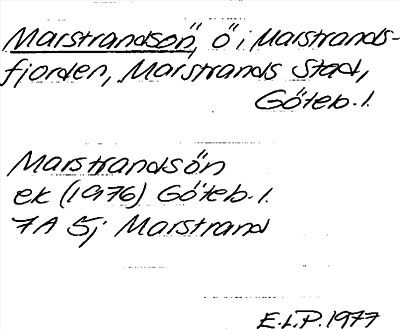 Marstrandsön, ö i Marstrands-
fjorden, Marstrands stad,
Göteb. l.
Marstrandsön
ek (1976) Göteb. l.
7A 5j Marstrand
E.L.P. 1977